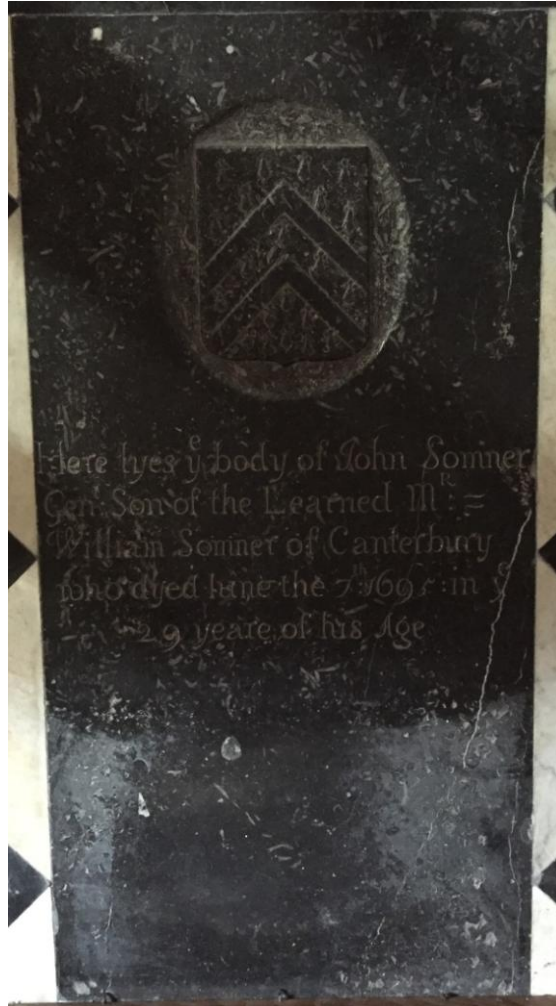 Here lyes yᵉ body of John Somner
Gen: Son of the Learned Mᴿ: =
William Somner of Canterbury
who dyed Iune the 7ᵗʰ: 1695: in yᵉ
29 yeare of his Age